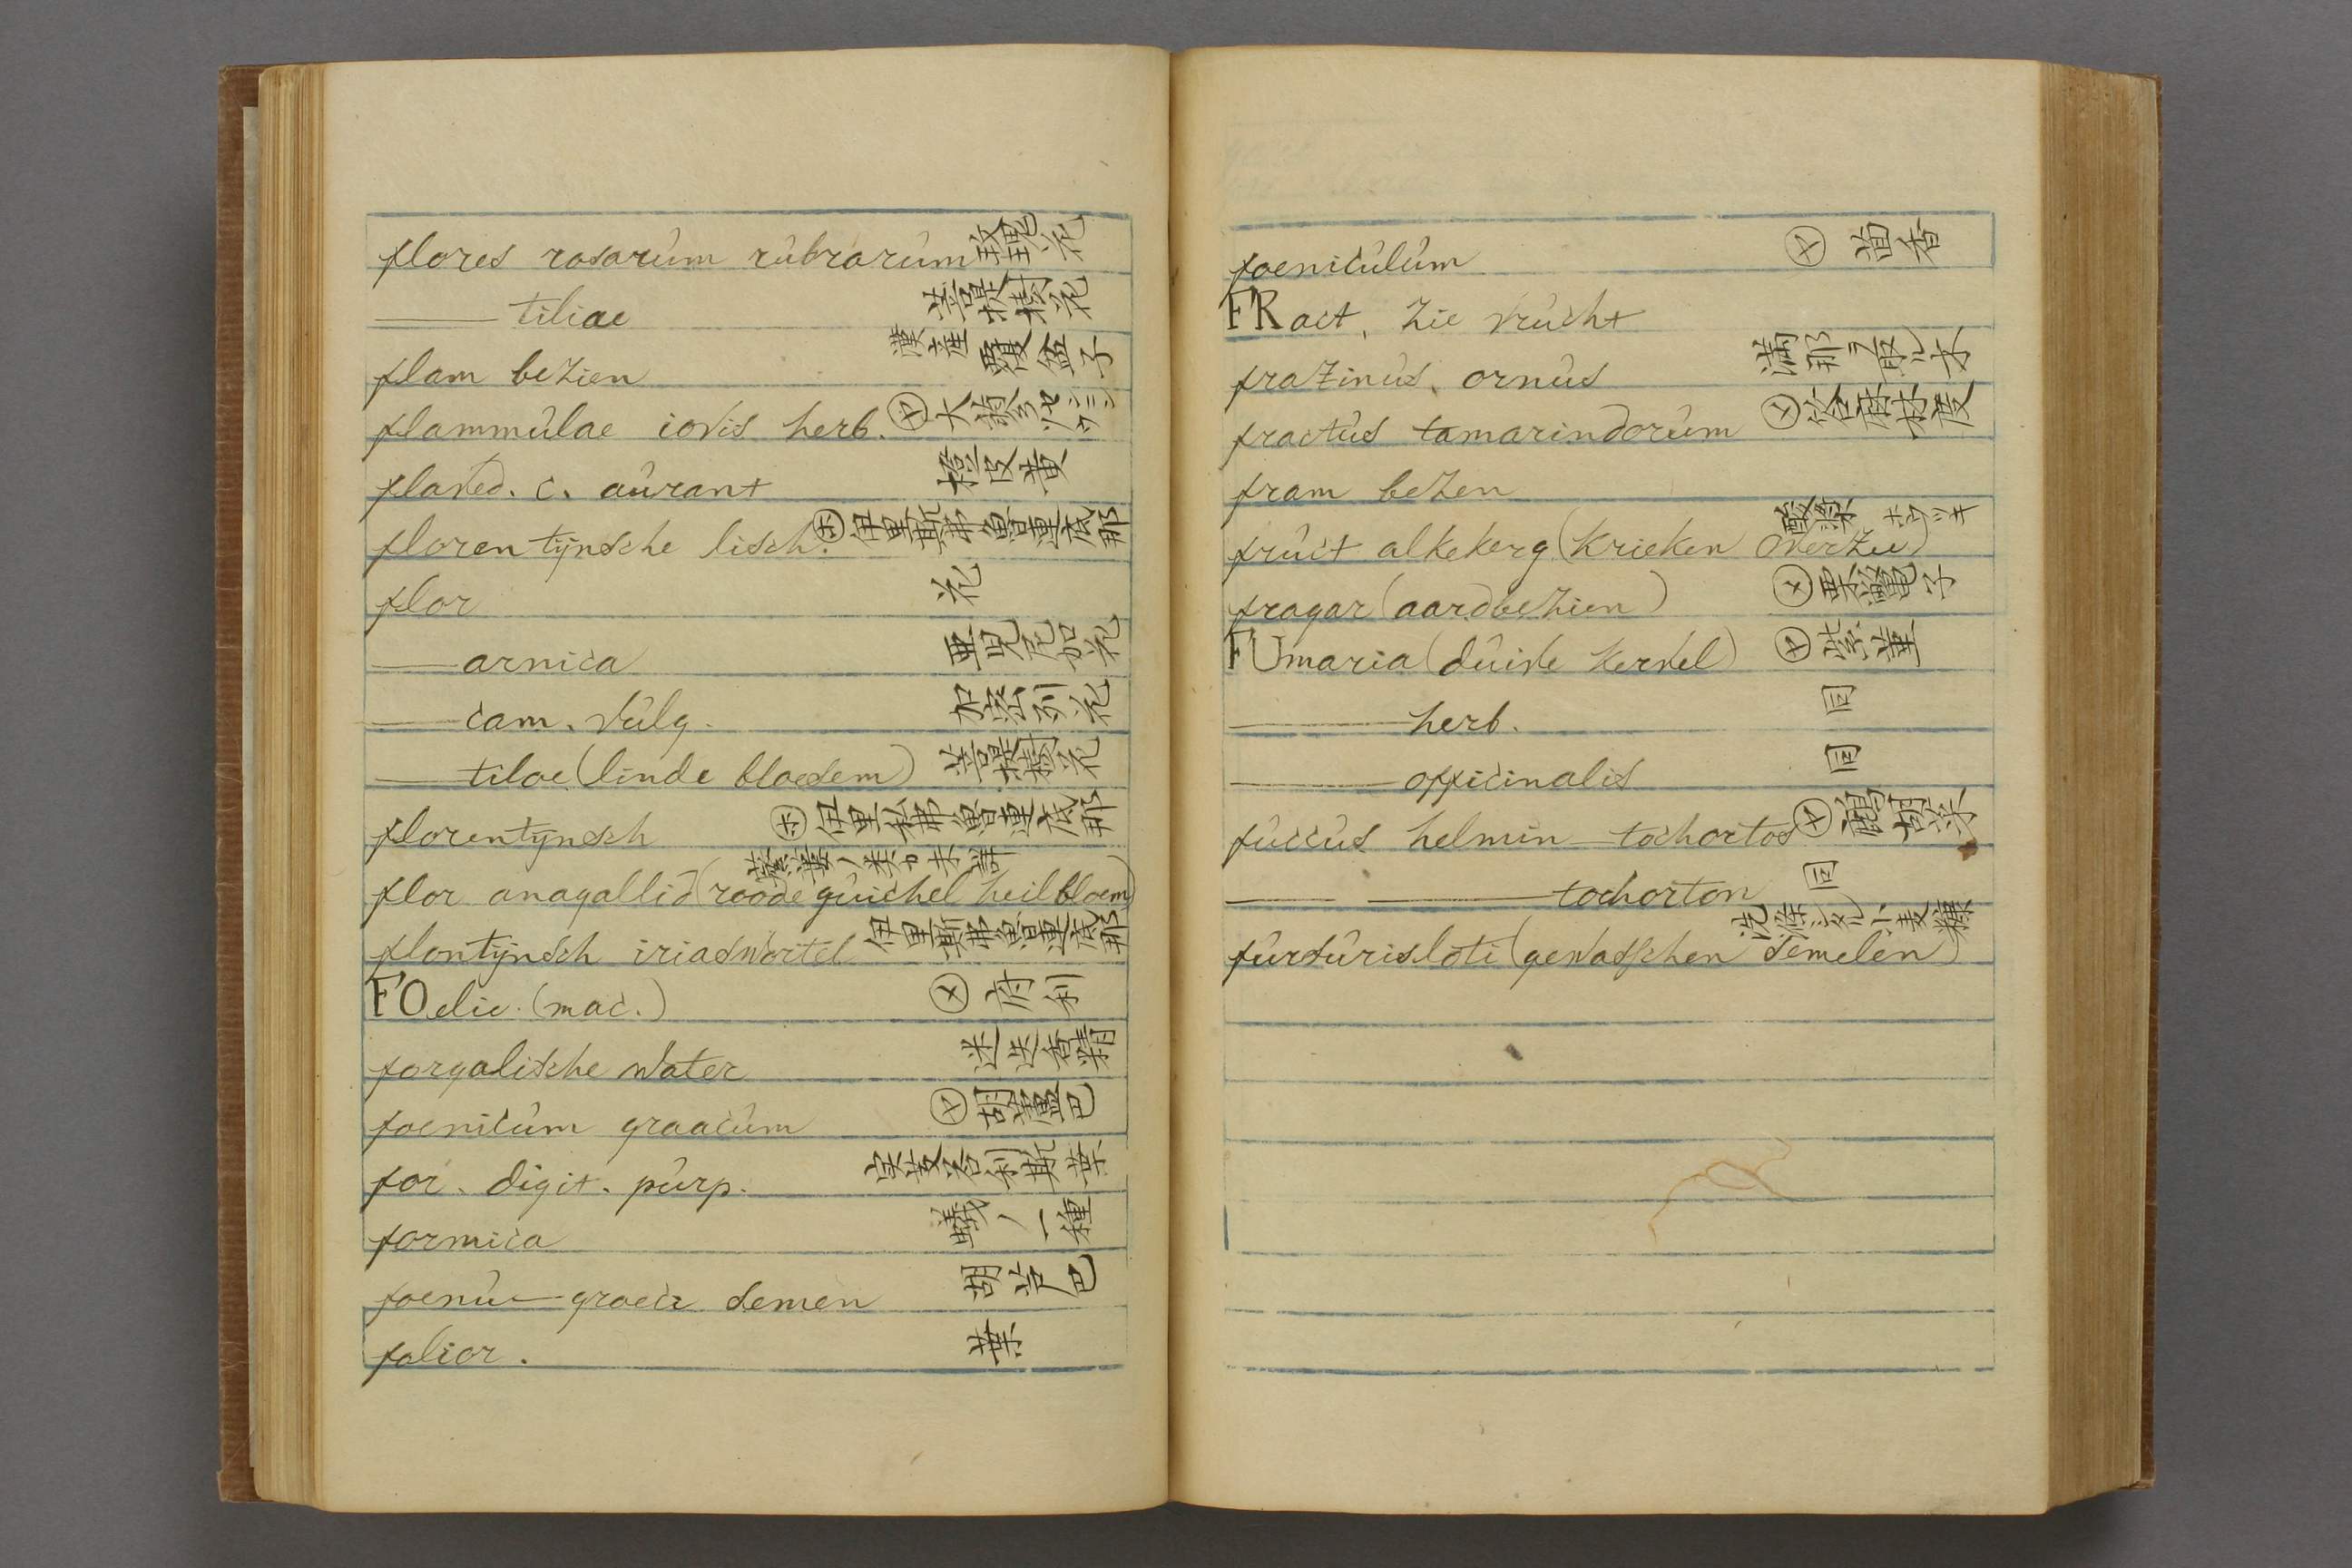 flores rosarûm rûbrarûm 玫瑰花
—— tiliae 菩提樹花
flam bezien 漢産覆盆子
flammûlae iovis herb. ㋳ 大蓼
flaved. c. aûrant 橙皮黄
florentÿnsche lisch. ㋭ 伊里斯弗魯連底那
flor 花
—— arnica 亜児尼加花
—— cam. vûlg. 加密列花
—— tiloe (linde bloesem) 菩提樹花
florentÿnsch ㋭ 伊里私弗魯連底那
flor anagallid (roode gûichel heilbloem)
flontÿnsch iriaswortel 伊里斯弗魯連底那
FOelie. (mac.) ㋱ 府利
forgalische water 迷迭香精
foenicûm graacûm ㋳ 胡蘆巴
for. digit. pûrp. 実芰答利斯草
formica 蟻ノ一種
foenû— graeci semen 胡芦巴
folior. 葉
foenicûlûm ㋳ 茴香
FRact, zie vrûcht
frazinûs, ornûs 満那
fractûs tamarindorûm ㋱ 答麻林度
fram bezen
frûct alkekerg (krieken overzee) 酸漿 ホウツキ
fragar (aardbezien) ㋱ 覆盆子
FUmaria (dûive kervel) ㋳ 紫菫
—— herb. 同
—— officinalis 同
fûccûs helmin—tochortos ㋳ 鷓胡菜
—— —— tochorton 同
fûrfûris.loti (gewasschen semelen) 洗滌シタル小麦糠